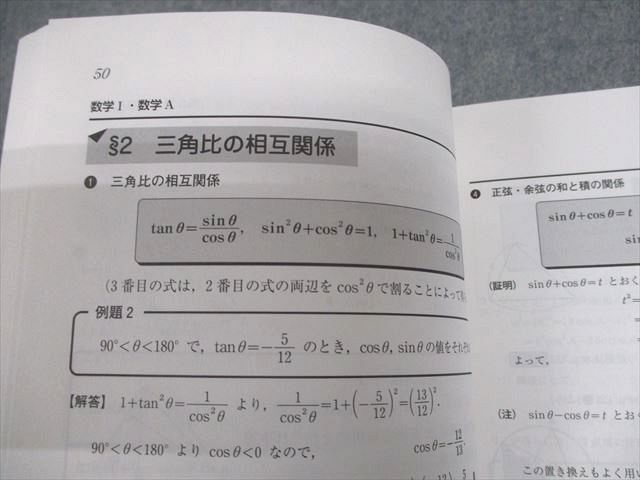 50
数学Ⅰ・数学A
§2 三角比の相互関係
❶ 三角比の相互関係
tanθ=sinθ/cosθ, sin²θ+cos²θ=1, 1+tan²θ=1/cos²θ
(3番目の式は,2番目の式の両辺をcos²θで割ることによって
例題2
90°<θ<180° で,tanθ=−5/12 のとき,cosθ, sinθの値をそれぞれ
【解答】 1+tan²θ=1/cos²θ より, 1/cos²θ=1+(−5/12)²=(13/12)².
90°<θ<180° より cosθ<0 なので, cosθ=−12/13.
❹ 正弦・余弦の和と積の関係
sinθ+cosθ=t
(証明) sinθ+cosθ=t とおく
t²=
よって,
(注) sinθ−cosθ=t とお
この置き換えもよく用い